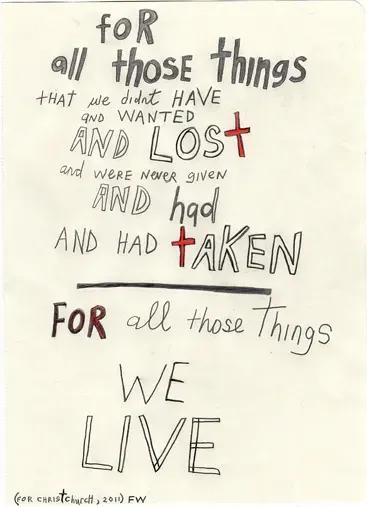 foR
all thoSE things
tHAT we didnt HAVE
and WANTED
AND LOSt
and WERE NEVER GIVEN
AND had
AND HAD tAKEN
FOR all those Things
WE
LIVE
(FOR CHRIStchurch, 2011) FW